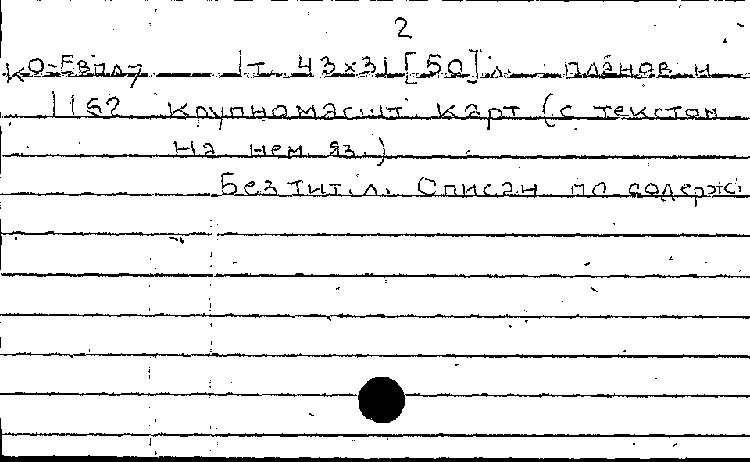 2
Ко-Евпл7 1т. 43х31 [50] л. планов и
1162 крупномасшт. карт (с текстом
на нем. яз.)
Без тит. л. Списан по содерж.